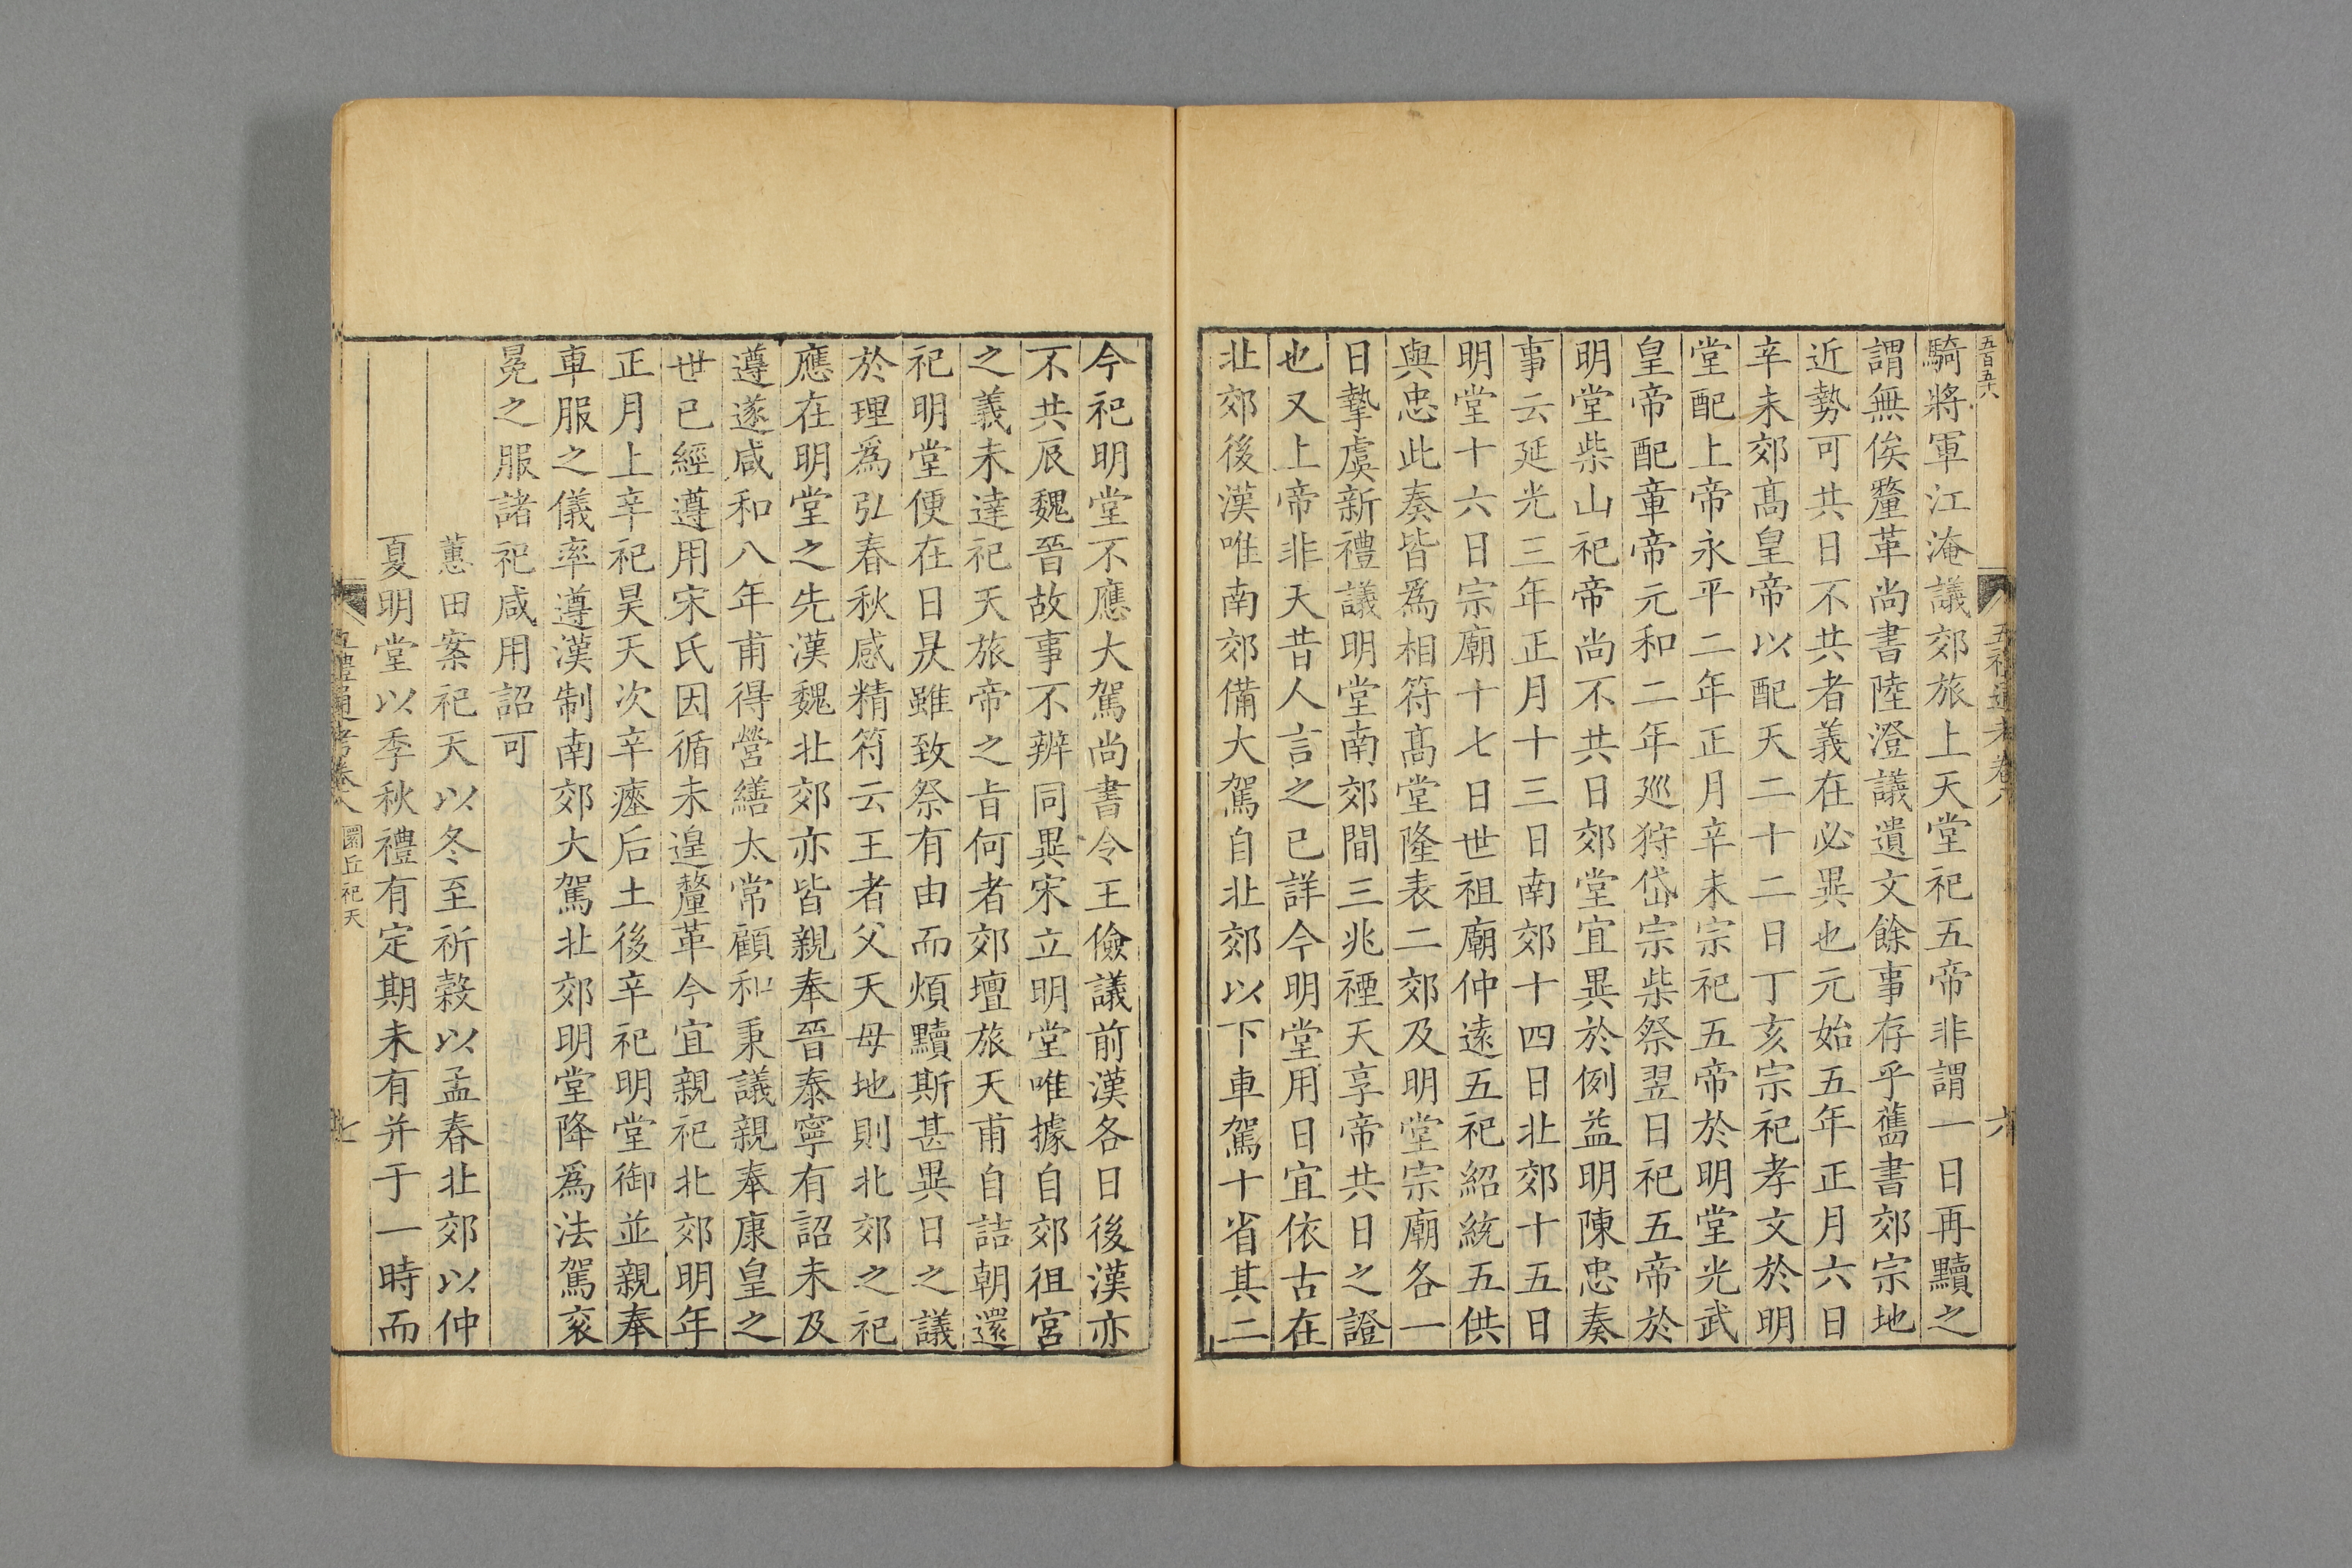 五百五六
五禮通考卷八
六
騎將軍江淹議郊旅上天堂祀五帝非謂一日再黷之
謂無俟釐革尚書陸澄議遺文餘事存乎舊書郊宗地
近勢可共日不共者義在必異也元始五年正月六日
辛未郊髙皇帝以配天二十二日丁亥宗祀孝文於明
堂配上帝永平二年正月辛未宗祀五帝於明堂光武
皇帝配章帝元和二年廵狩岱宗柴祭翌日祀五帝於
明堂柴山祀帝尚不共日郊堂宜異於例益明陳忠奏
事云延光三年正月十三日南郊十四日北郊十五日
明堂十六日宗廟十七日世祖廟仲逺五祀紹統五供
與忠此奏皆爲相符髙堂隆表二郊及明堂宗廟各一
日摯虞新禮議明堂南郊間三兆禋天享帝共日之證
也又上帝非天昔人言之已詳今明堂用日宜依古在
北郊後漢唯南郊備大駕自北郊以下車駕十省其二
今祀明堂不應大駕尚書令王儉議前漢各日後漢亦
不共辰魏晉故事不辨同異宋立明堂唯據自郊徂宮
之義未達祀天旅帝之㫖何者郊壇旅天甫自詰朝還
祀明堂便在日昃雖致祭有由而煩黷斯甚異日之議
於理爲弘春秋感精符云王者父天母地則北郊之祀
應在明堂之先漢魏北郊亦皆親奉晉泰寧有詔未及
遵遂咸和八年甫得營繕太常顧和秉議親奉康皇之
世已經遵用宋氏因循未遑釐革今宜親祀北郊明年
正月上辛祀昊天次辛瘞后土後辛祀明堂御並親奉
車服之儀率遵漢制南郊大駕北郊明堂降爲法駕衮
冕之服諸祀咸用詔可
蕙田案祀天以冬至祈穀以孟春北郊以仲
夏明堂以季秋禮有定期未有并于一時而
五禮通考卷八
圜丘祀天
七